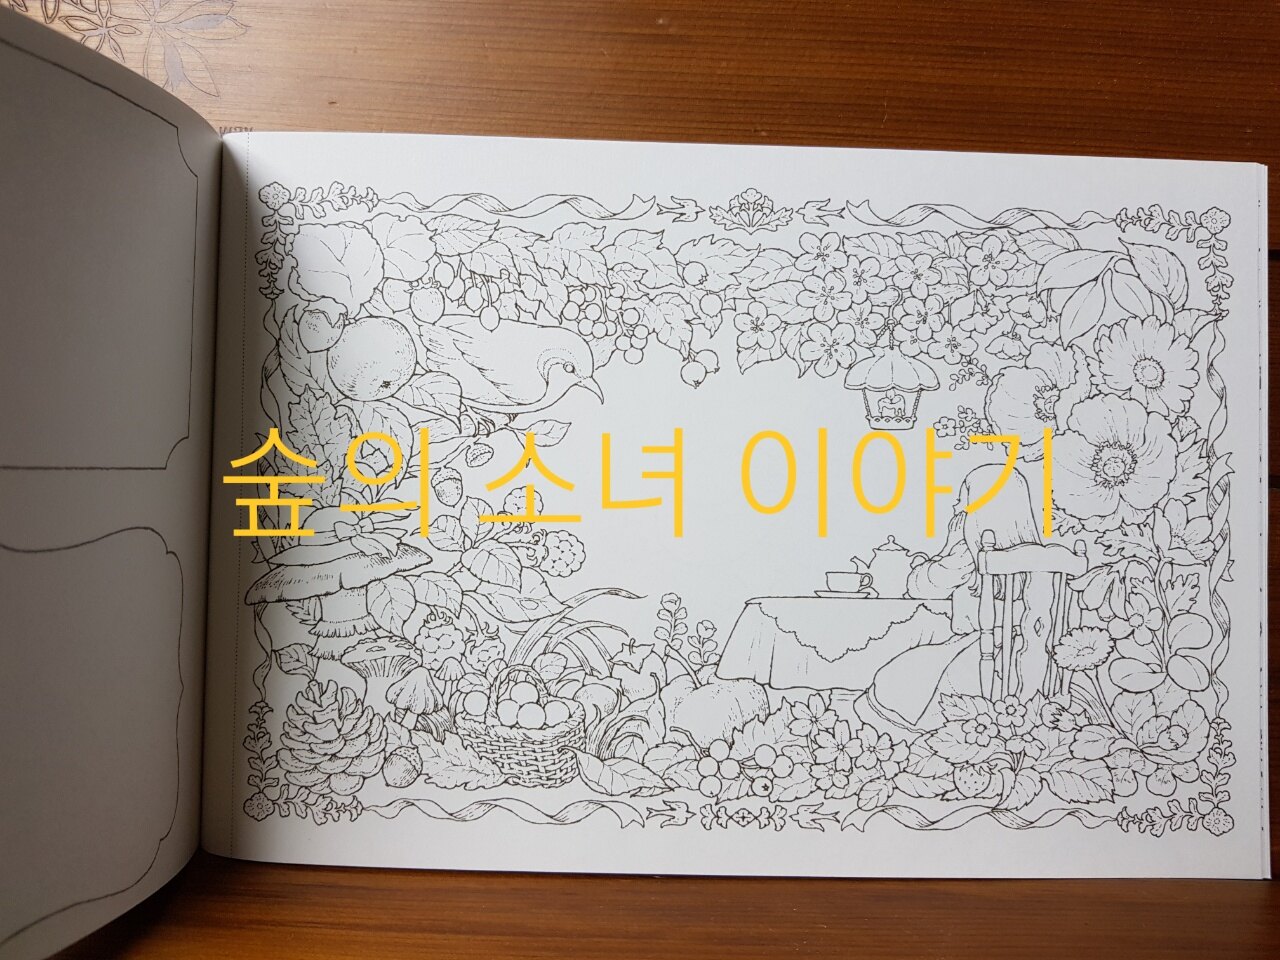 숲의 소녀 이야기